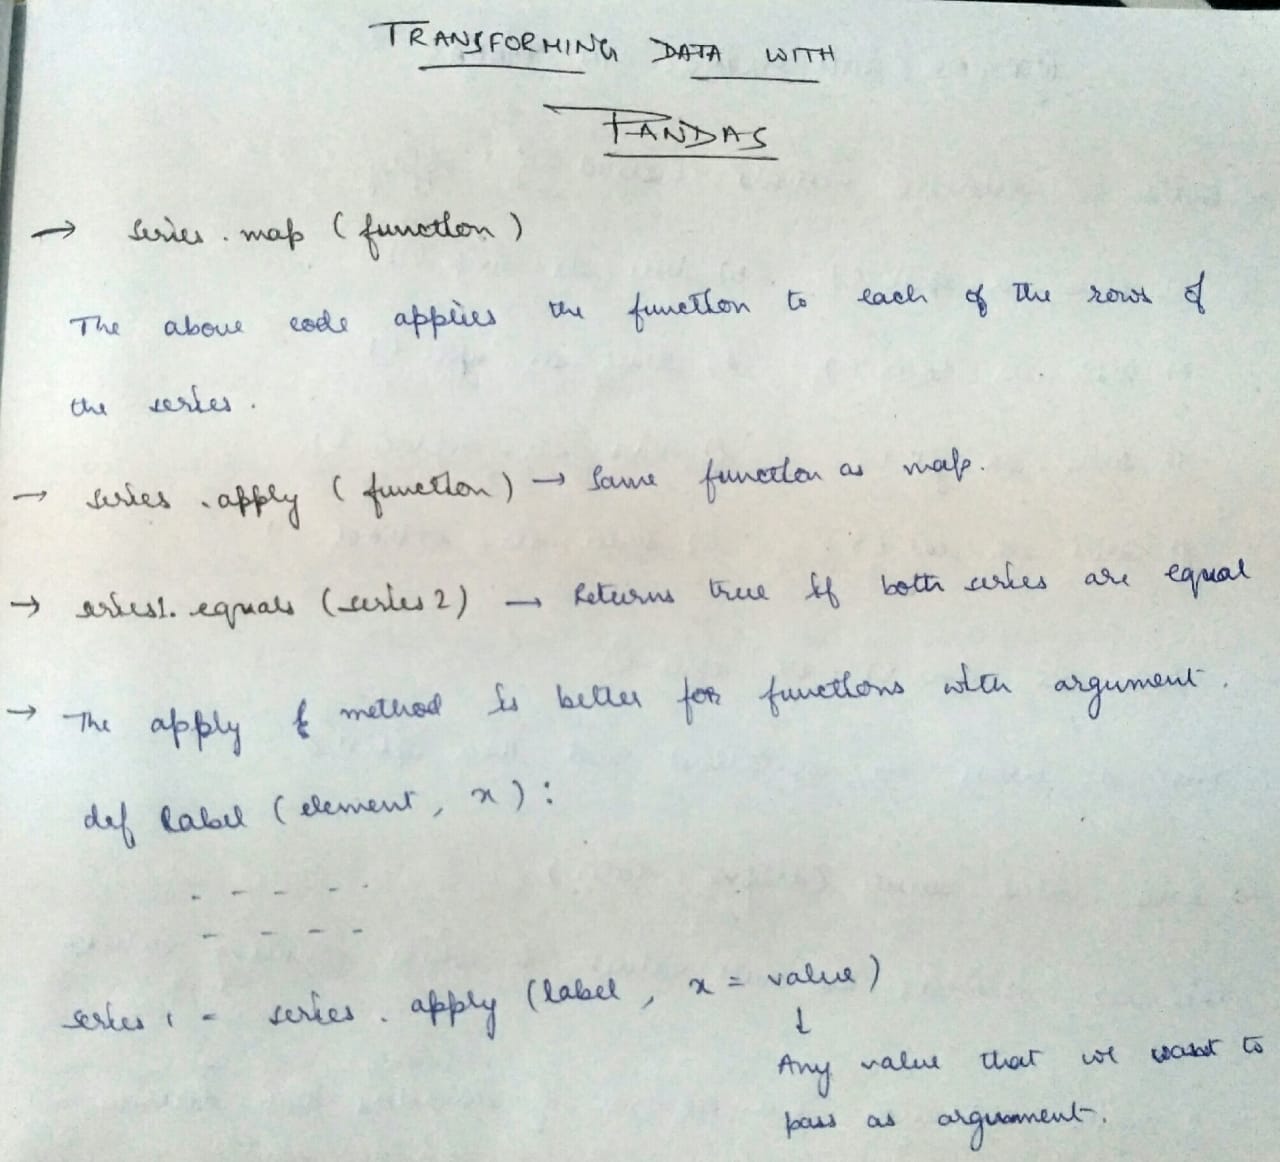 TRANSFORMING DATA WITH
PANDAS
→ series . map ( function )
The above code applies the function to each of the rows of
the series .
→ series . apply ( function ) → Same function as map.
→ series1. equals (series 2) → Returns true if both series are equal
→ The apply method is better for functions with argument .
def label ( element , x ) :
- - - -
- - - -
series 1 = series . apply (label , x = value )
↓
Any value that we want to
pass as argument.